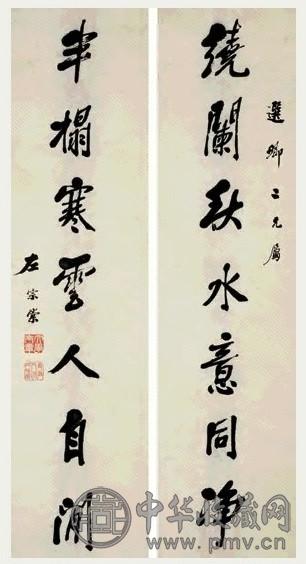 選卿二兄屬
繞闌秋水意同淨
半榻寒雲人自閒
左宗棠
中华收藏网
www.pmv.cn